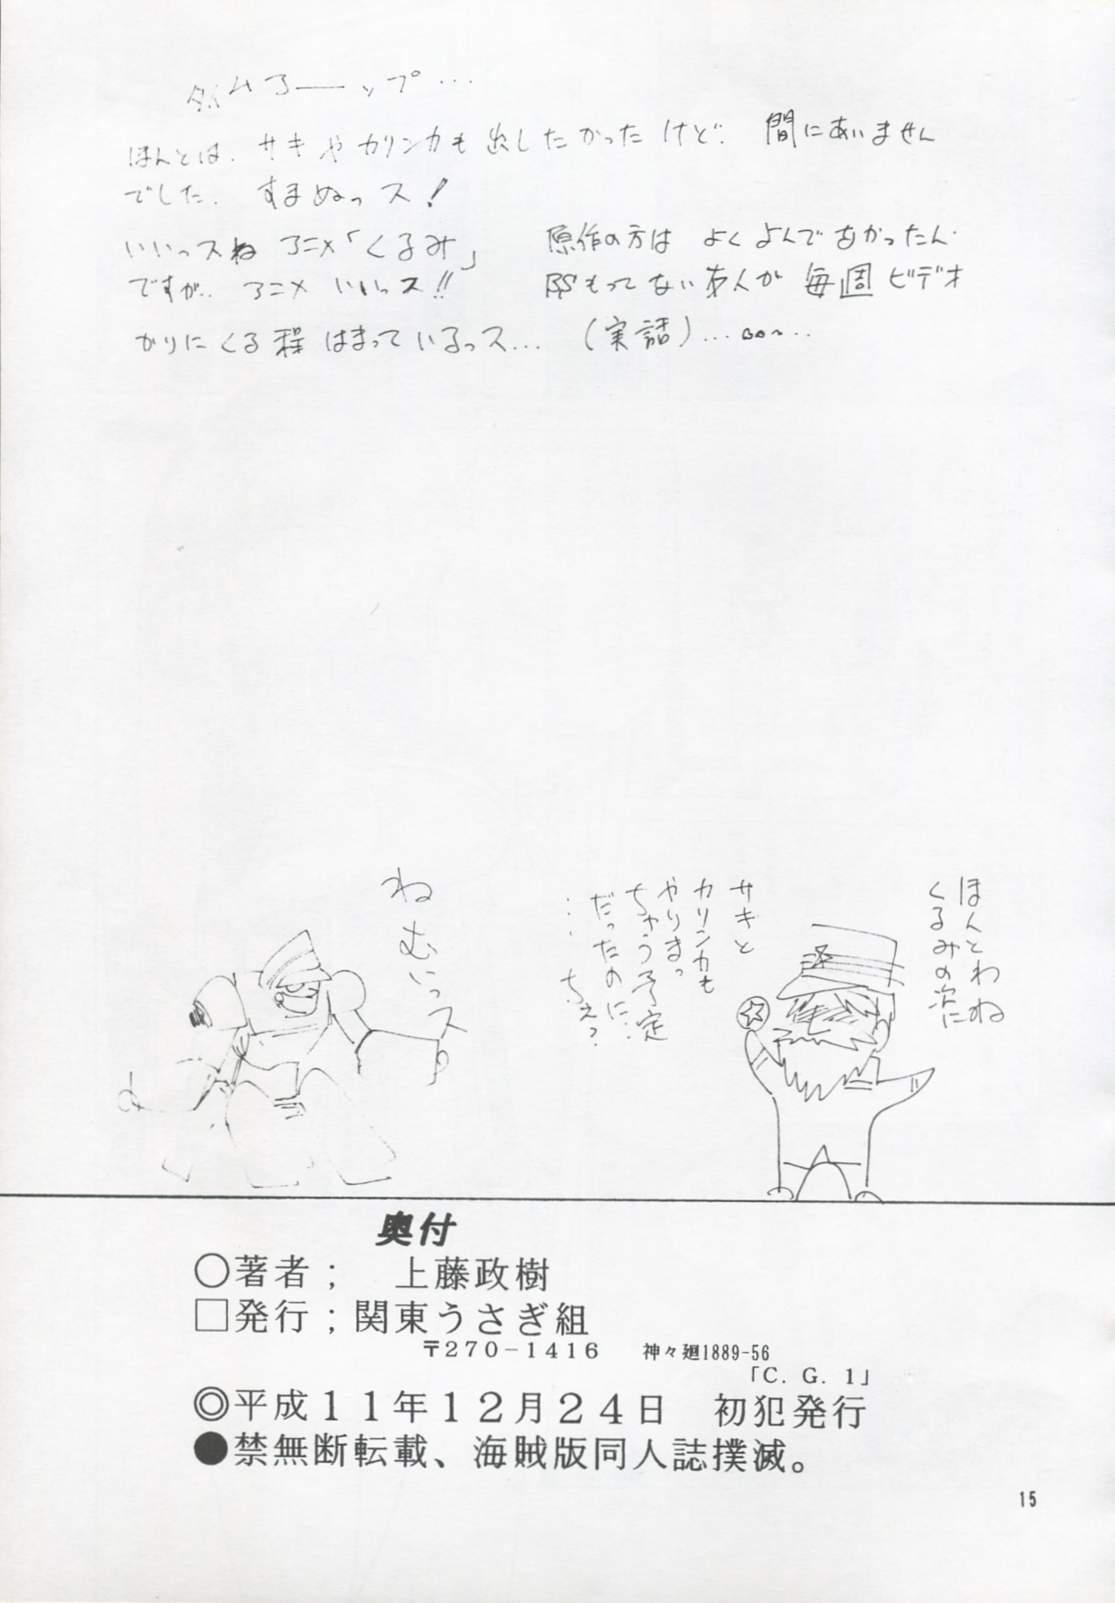 タイムアーップ...
ほんとは. サキやカリンカも出したかったけど. 間にあいません
でした. すまぬっス!
いいっスね アニメ「くるみ」 原作の方は よくよんで
ですが.. アニメ いいっス!! BSもってない 毎週 ビデオ
かりにくる程 はまっているっス... (実話)...
ねむいっス
ほんとわね
くるみの次に
サキと
カリンカも
やりまっ
ちゃう予定
だったのに..
... ちぇっ
奥付
○著者; 上藤政樹
□発行;関東うさぎ組
〒270-1416 神々廻1889-56
「C. G. 1」
◎平成11年12月24日 初犯発行
●禁無断転載、海賊版同人誌撲滅。
15